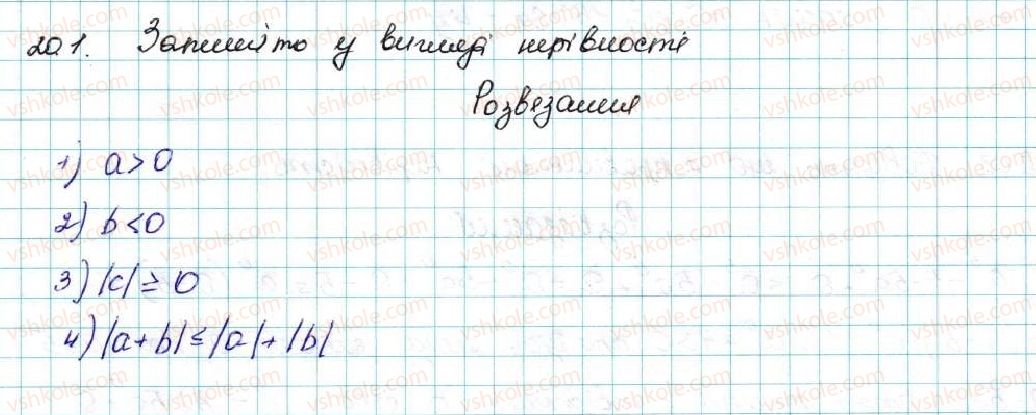 20.1. Запишіть у вигляді нерівності
Розвезання
1) a > 0
2) b < 0
3) |c| ≥ 0
4) |a + b| ≤ |a| + |b|
vshkole.com